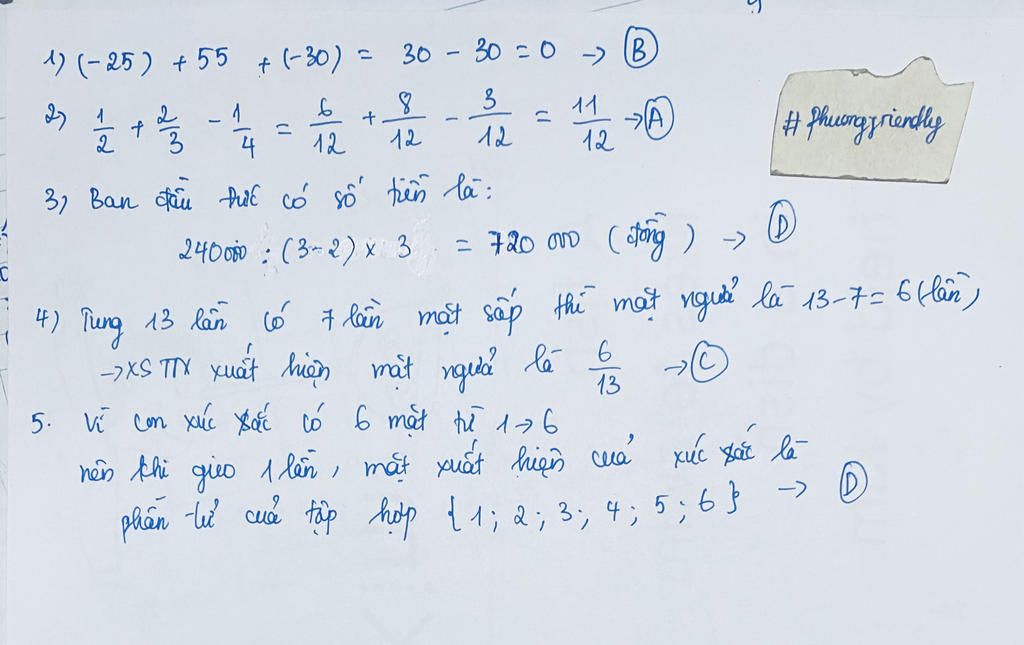 1) (-25) + 55 + (-30) = 30 - 30 = 0 → B
2) 1/2 + 2/3 - 1/4 = 6/12 + 8/12 - 3/12 = 11/12 → A
# Phuongfriendly
3) Ban đầu Đức có số tiền là:
240000 : (3-2) x 3 = 720 000 (đồng) → D
4) Tung 13 lần có 7 lần mặt sấp thì mặt ngửa là 13-7 = 6 (lần)
→ XS TN xuất hiện mặt ngửa là 6/13 → C
5. Vì con xúc xắc có 6 mặt từ 1 → 6
nên khi gieo 1 lần, mặt xuất hiện của xúc xắc là
phần tử của tập hợp {1; 2; 3; 4; 5; 6} → D